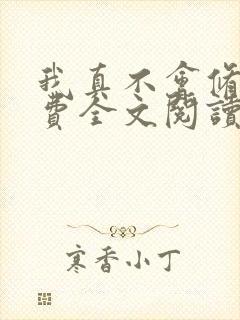 我真不會修
費全文閱讀
寒香小丁